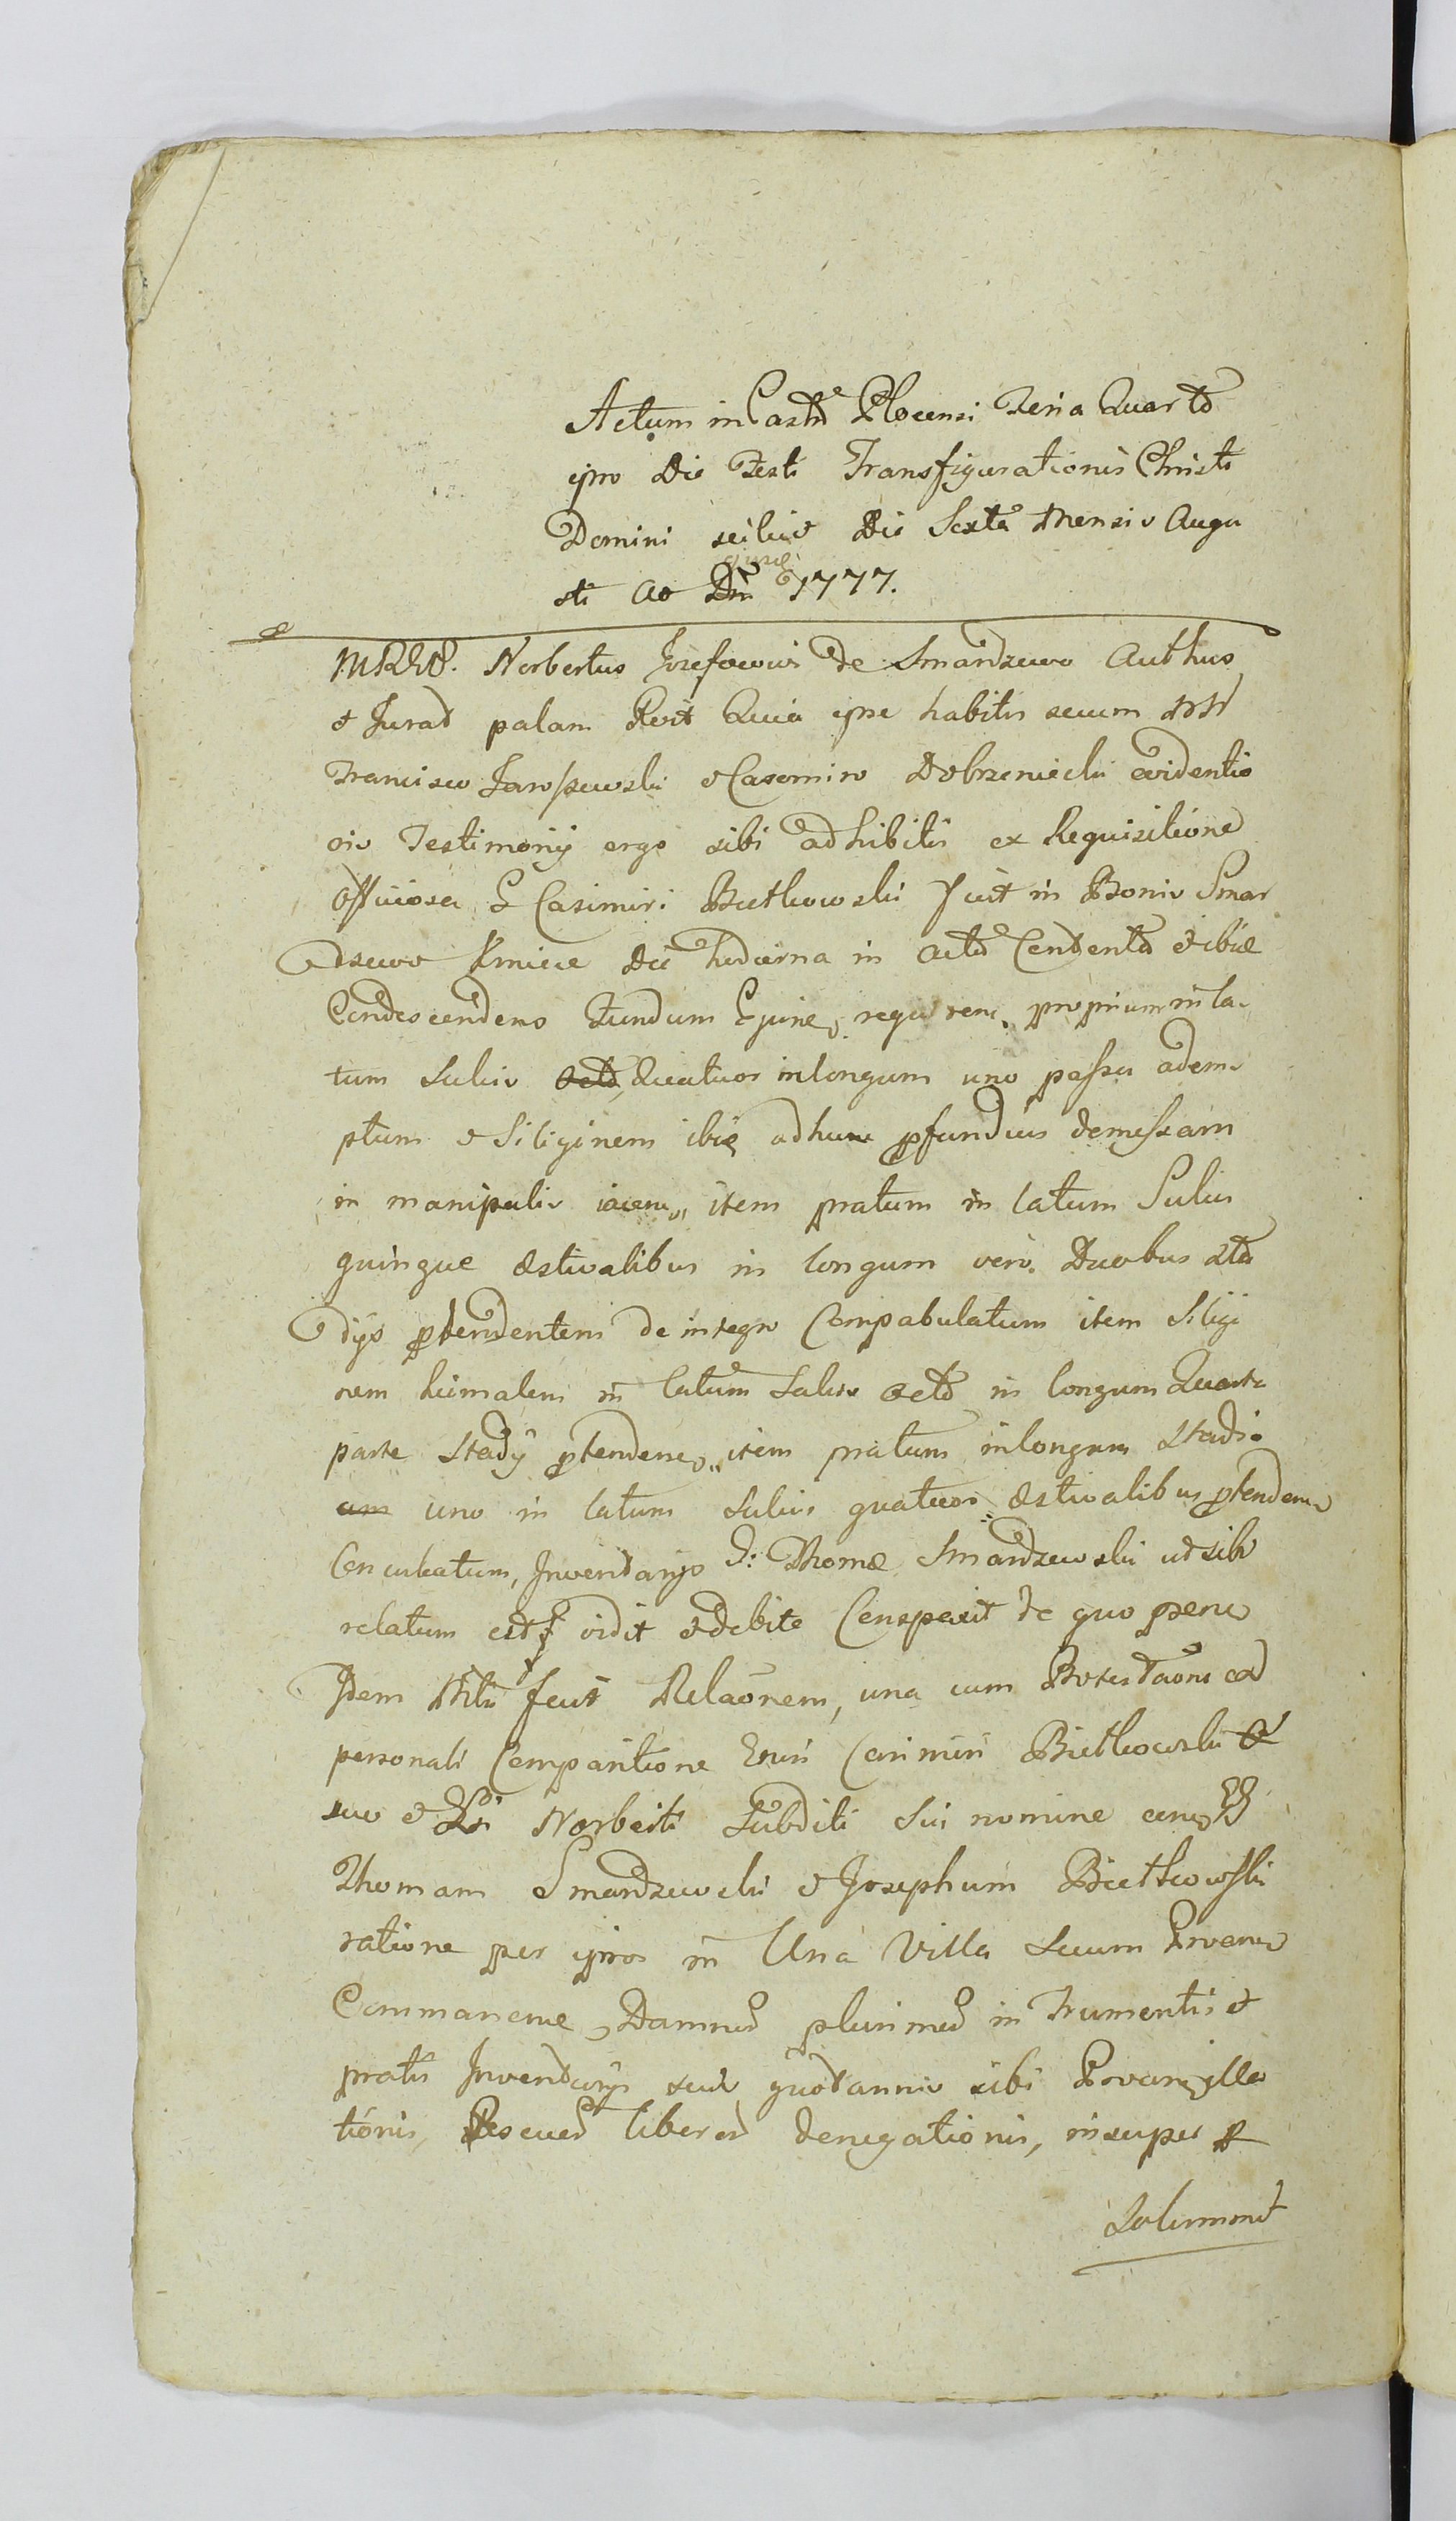 Actum in Castro Plocensi Feria Quarta
ipso Die Festi Transfigurationis Christi
Domini scilicet Die Sexta Mensis Augu
sti Ao Dni 1777.
Norbertus Jozefowicz de Smardzewo Authus
et Jurat palam Rcit Quia ipse habitis secum
Francisco Jaroszewski et Casemiro Dobrzeniecki evidentio
ris Testimonij ergo sibi adhibitis ex Requisitione
officiosa G Casimiri Bietkowski fuit in Bonis Smar
dzewo Kmiece Die hodierna in actu Contentis et ibiq
Condescendens Fundum Equirens proprium in la
tum Sulcis octo, Quatuor in longum uno passu adem
ptum et Siliginem ibiq adhuc profundius demessam
in manipulis iacen, item pratum in latum Sulcis
quinque æstivalibus in longum vero Duobus Sta
dijs ptendentem de integro Compabulatum item Siligi
nem hiemalem in latum Sulcis octo in longum Quarta
parte Stadij ptenden, item pratum in longum Stadio
um uno in latum Sulcis quatuor æstivalibus ptenden
Conculcatum, Inventarijs G: Thomæ Smardzewski ut sibi
relatum est vidit et debite Conspexit de quo psens
Idem Mtlis fecit Relaonem, una cum Protestaone ad
personali Comparitione Gnsi Casimiri Bietkowski
suo et Norberti Subditi Sui nomine cona GG
Thomam Smardzewski et Josephum Bietkowski
ratione per ipsos in Una Villa Secum
Commanen, Damnor plurimor in Frumentis et
pratis Inventarijs suis quotannis sibi
tionis, Pascuor liberor denegationis, insuper